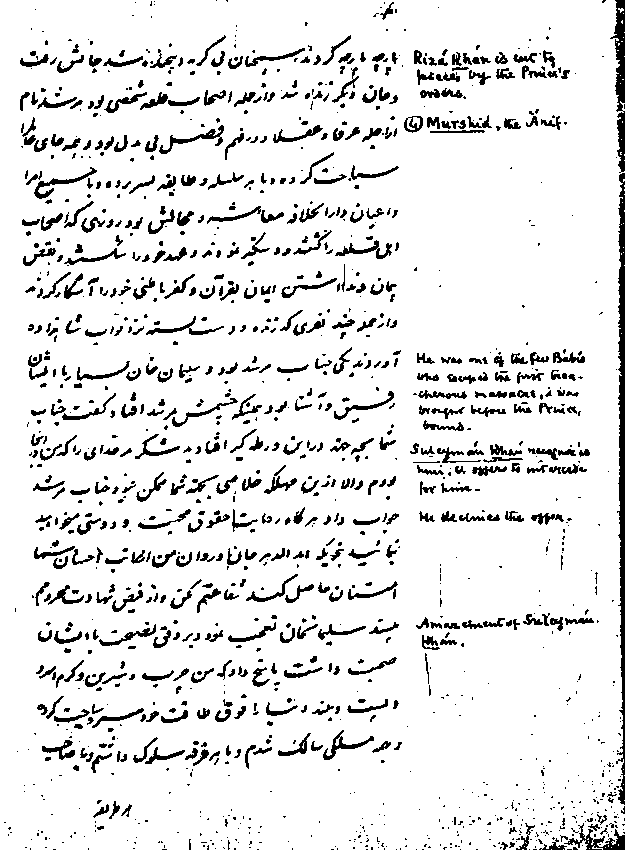 پارچه پارچه کردند سپس خان بی گریه و پنجاه شد جانش رفت
و جان دیگر زنده شد و از جمله اصحاب قلعه شخصی بود مرشد نام
از اجله عرفا و عقلا و در فهم و فضل بی بدل بود و همه جای
سیاحت کرده و با هر سلسله و طایفه بسر برده و با جمیع امرا
و اعیان دارالخلافه معاشر و مجالس بود روزی که اصحاب
اهل قلعه را کشتند و دستگیر نمودند و عهد خود را شکستند و نقض
پیمان و نداشتن ایمان بقرآن و کفر باطنی خود را آشکار کردند
و از جمله چند نفری که زنده و دست بسته نزد نواب شاهزاده
آوردند یکی جناب مرشد بود و سلیمان خان بسیار با ایشان
رفیق و آشنا بود همینکه چشمش بمرشد افتاد گفت جناب
شما بچه جهة در این ورطه گیر افتادید شکر مر خدای را که من اینجا
بودم والا ازین مهلکه خلاصی بجهة شما ممکن نبود جناب مرشد
جواب داد هرگاه رعایت حقوق محبت و دوستی میخواهید
نمائید بحق الله الذی هر جان و روان من از طالب احسان شما
امتنان حاصل کند شفاعتم مکن و از فیض شهادت محرومم
مپسند سلیمانخان تعجب نمود و بر وفق نصیحت با ایشان
صحبت داشت پاسخ داد که من چرب و شیرین و گرم و سرد
و پست و بلند دنیا را فوق طاقت خود سیر و سیاحت کرده
و بهر مسلکی سالک شدم و با هر فرقه سلوک داشتم و با صاحب
هر طریقه
Rizá Khán is cut to
pieces by the Prince's
orders.
(4) Murshid, the Árif.
He was one of the few Bábís
who escaped the first trea-
-cherous massacre, & was
brought before the Prince,
bound.
Suleymán Khán recognizes
him, & offers to intercede
for him.-
He declines the offer.
Amazement of Suleymán
Khán.